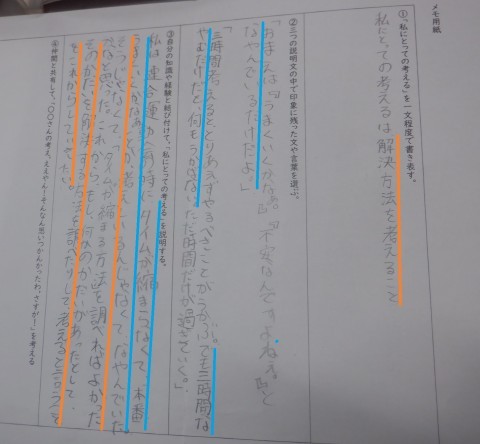 メモ用紙
①「私にとっての考える」を一文程度で書き表す。
私にとっての考えるは解決方法を考えること
②三つの説明文の中で印象に残った文や言葉を選ぶ。
「おまえは『うまくいくかなあ。』『不安なんですよねえ。』と
なやんでいるだけだよ。」
「三時間考えるととりあえずやるべきことがうかぶ。でも三時間な
やむだけだと、何もうかばない、ただ時間だけが過ぎていく。」
③自分の知識や経験と結び付けて、「私にとっての考える」を説明する。
私は連合運動会の時にタイムが縮まらなくて、本番
うまくいくかなあとか考えているんじゃなくてなやんでいた。
そうじゃなくて、「タイムが縮まる方法を調べればよかった
かなと思った。これからもし、何かのかだいがあったとして、
そのかだいを解決する方法を調べたりして考えると言うこと
をこれからしていきたい。
④仲間と共有して、「〇〇さんの考え、ええやん!そんなん思いつかんかったわ、さすが!」を考える